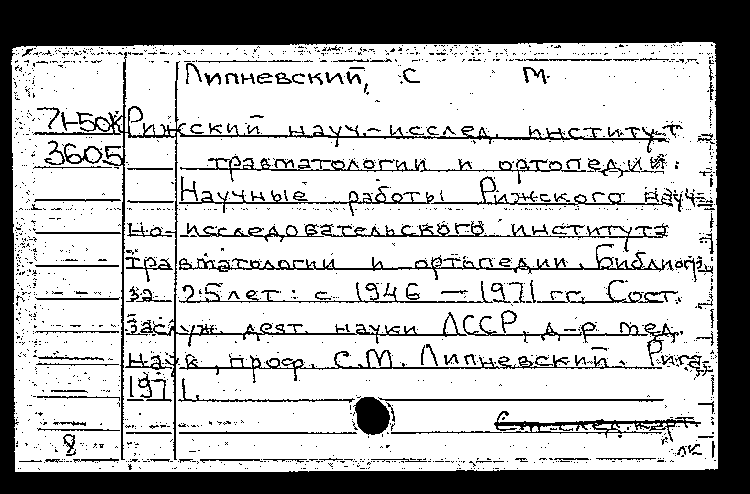 Липневский, С М.
71-50К Рижский науч.-исслед. институт
3605 травматологии и ортопедии.
Научные работы Рижского науч-
но-исследовательского института
травматологии и ортопедии. Библиогр.
за 25 лет: с 1946 — 1971 гг. Сост.
Заслуж. деят. науки ЛССР, д-р мед.
наук, проф. С.М. Липневский. Рига,
1971.
См след. карт.
8 лк